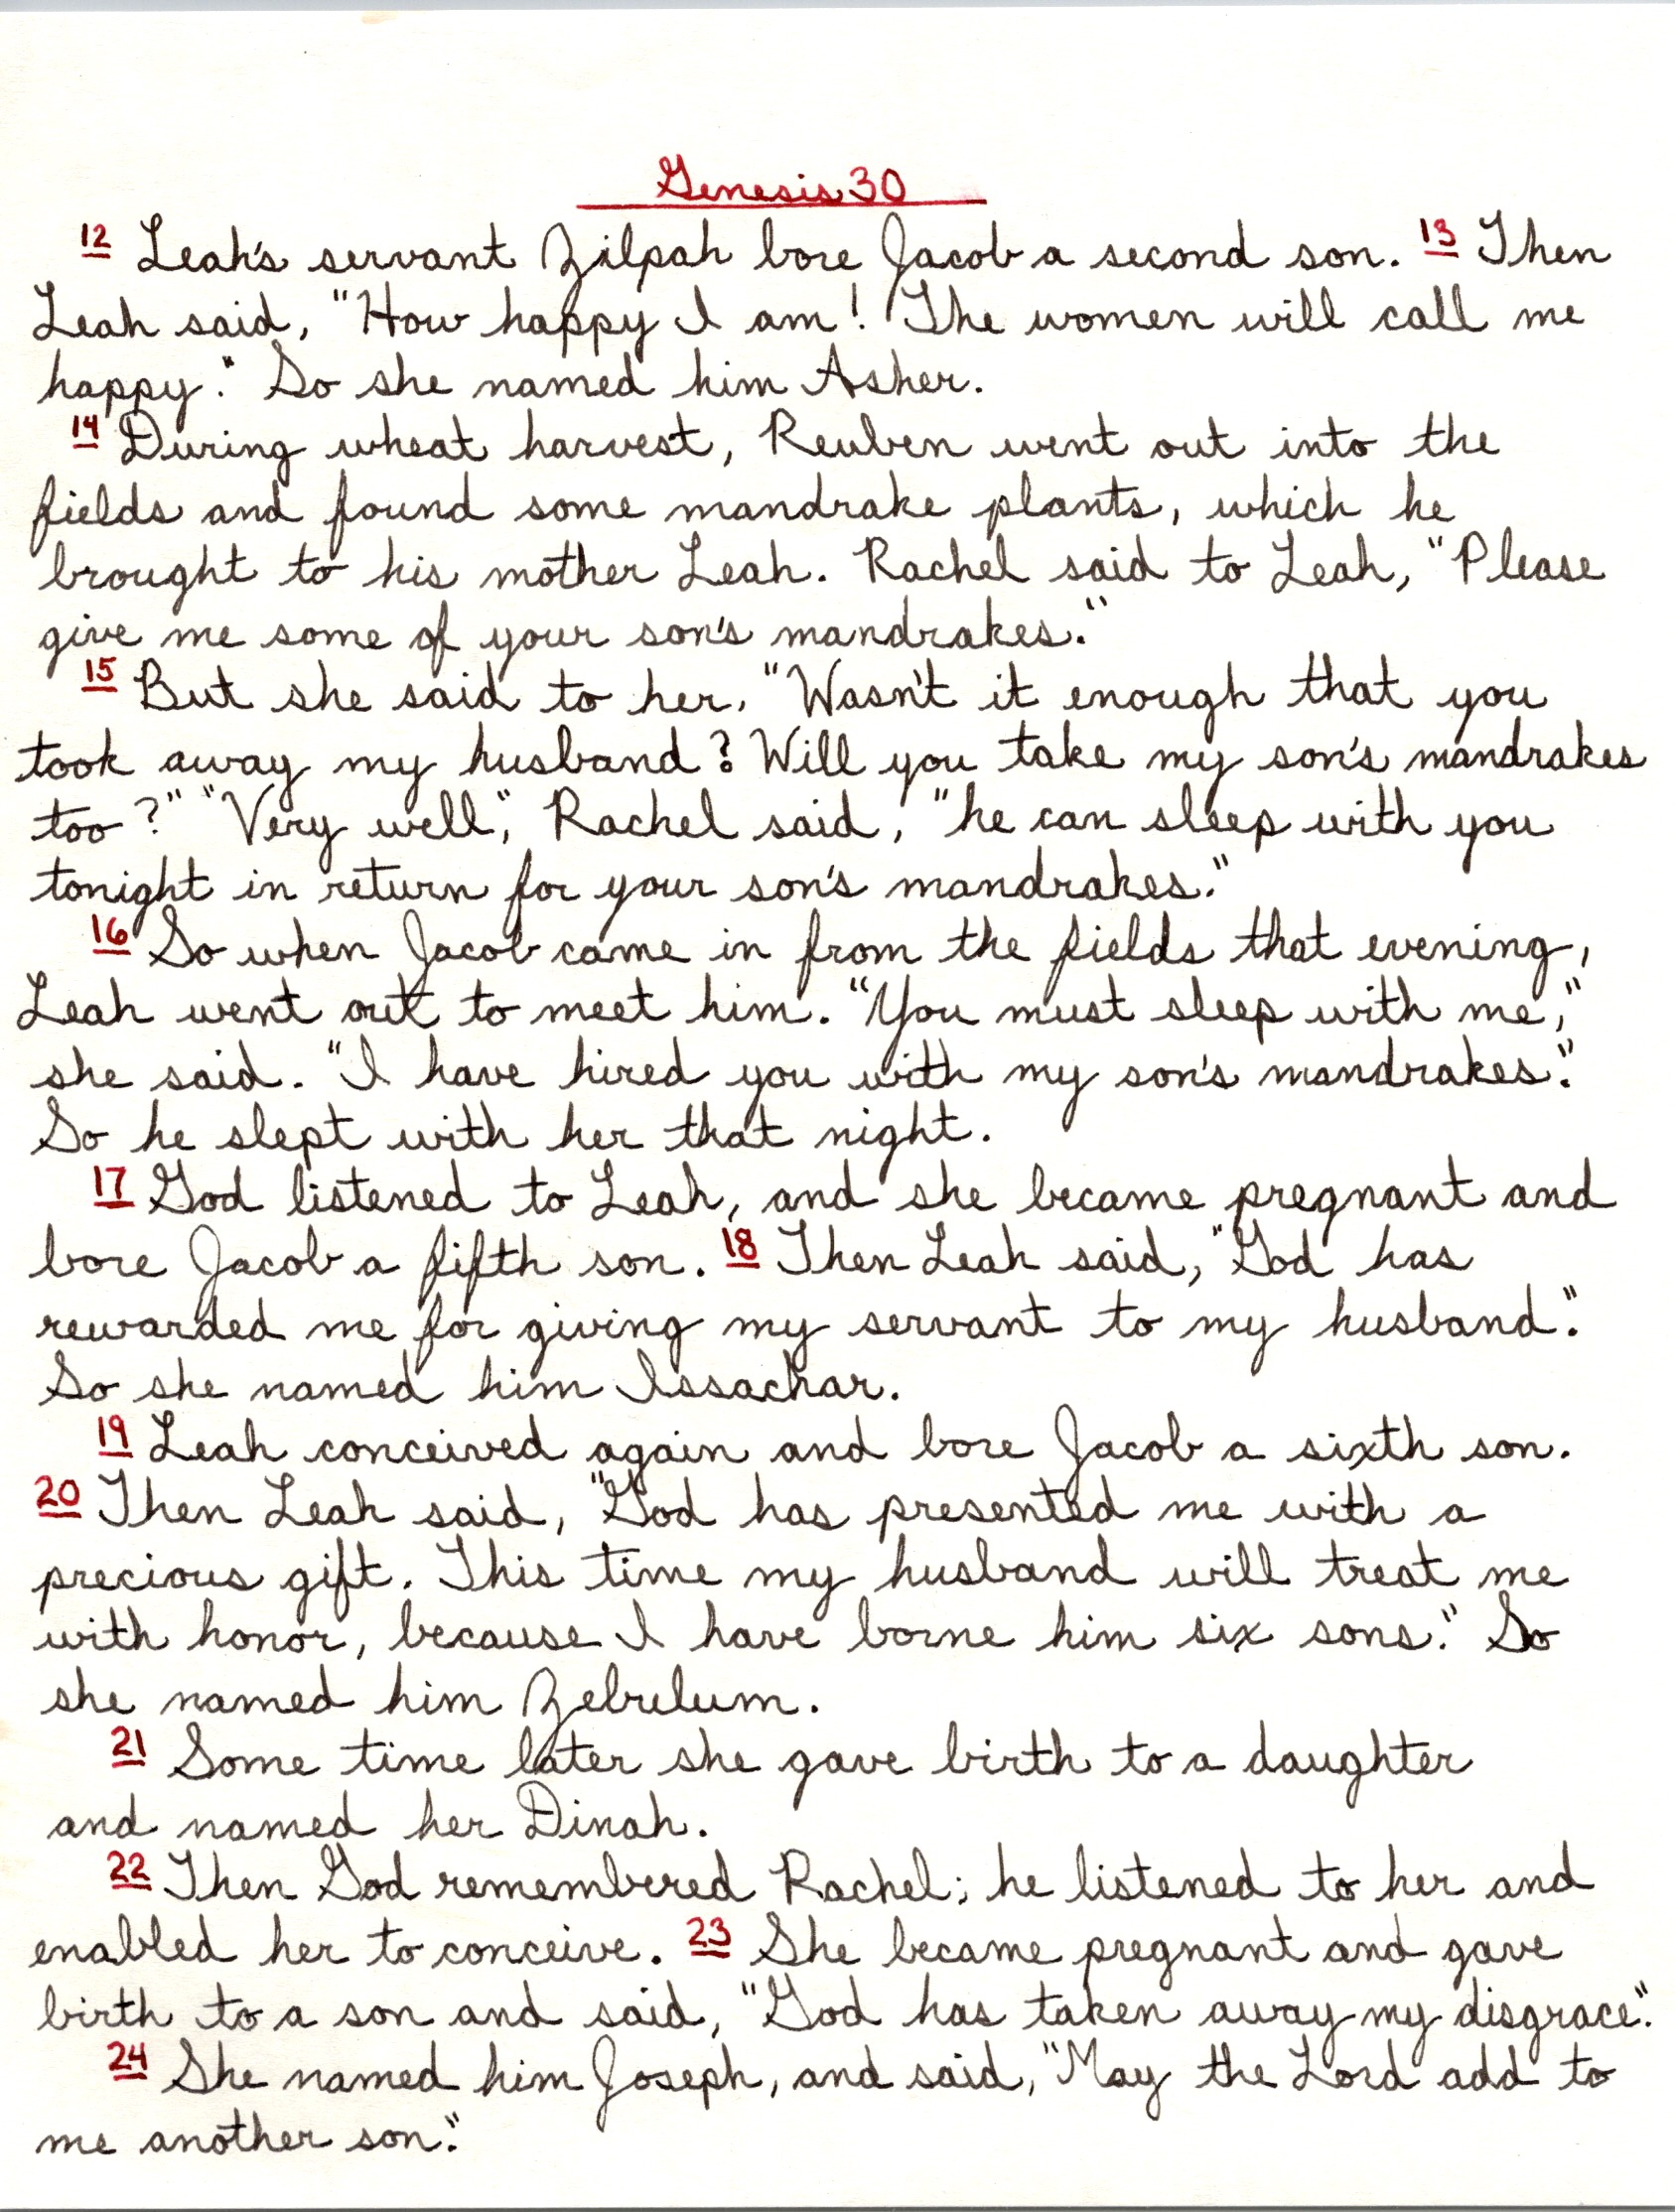 Genesis 30
12 Leah's servant Zilpah bore Jacob a second son. 13 Then
Leah said, "How happy I am! The women will call me
happy." So she named him Asher.
14 During wheat harvest, Reuben went out into the
fields and found some mandrake plants, which he
brought to his mother Leah. Rachel said to Leah, "Please
give me some of your son's mandrakes."
15 But she said to her, "Wasn't it enough that you
took away my husband? Will you take my son's mandrakes
too?" "Very well," Rachel said, "he can sleep with you
tonight in return for your son's mandrakes."
16 So when Jacob came in from the fields that evening,
Leah went out to meet him. "You must sleep with me,"
she said. "I have hired you with my son's mandrakes."
So he slept with her that night.
17 God listened to Leah, and she became pregnant and
bore Jacob a fifth son. 18 Then Leah said, "God has
rewarded me for giving my servant to my husband."
So she named him Issachar.
19 Leah conceived again and bore Jacob a sixth son.
20 Then Leah said, "God has presented me with a
precious gift. This time my husband will treat me
with honor, because I have borne him six sons." So
she named him Zebulum.
21 Some time later she gave birth to a daughter
and named her Dinah.
22 Then God remembered Rachel; he listened to her and
enabled her to conceive. 23 She became pregnant and gave
birth to a son and said, "God has taken away my disgrace."
24 She named him Joseph, and said, "May the Lord add to
me another son."